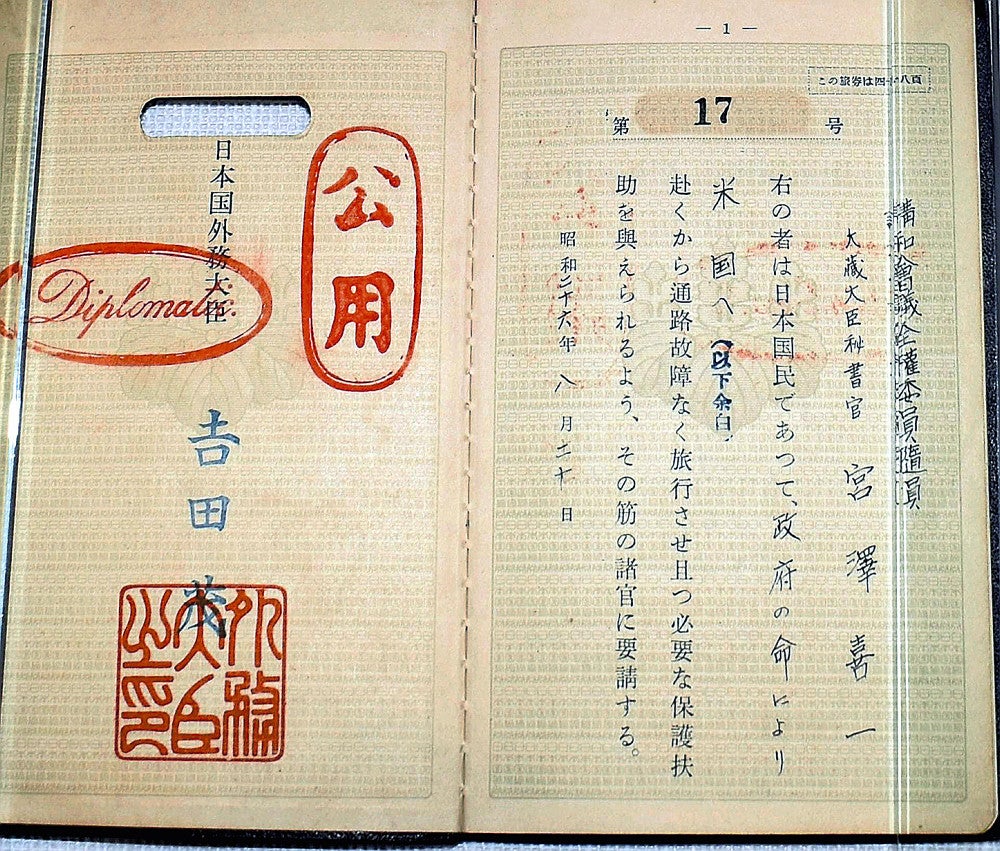 — 1 —
この旅券は四十八頁
第 17 号
講和會議全權委員隨員
大藏大臣秘書官 宮澤喜一
右の者は日本国民であつて、政府の命により
米国へ(以下余白)
赴くから通路故障なく旅行させ且つ必要な保護扶
助を與えられるよう、その筋の諸官に要請する。
昭和二十六年八月二十日
公用
日本国外務大臣
吉田茂
Diplomatic.
外務大臣之印